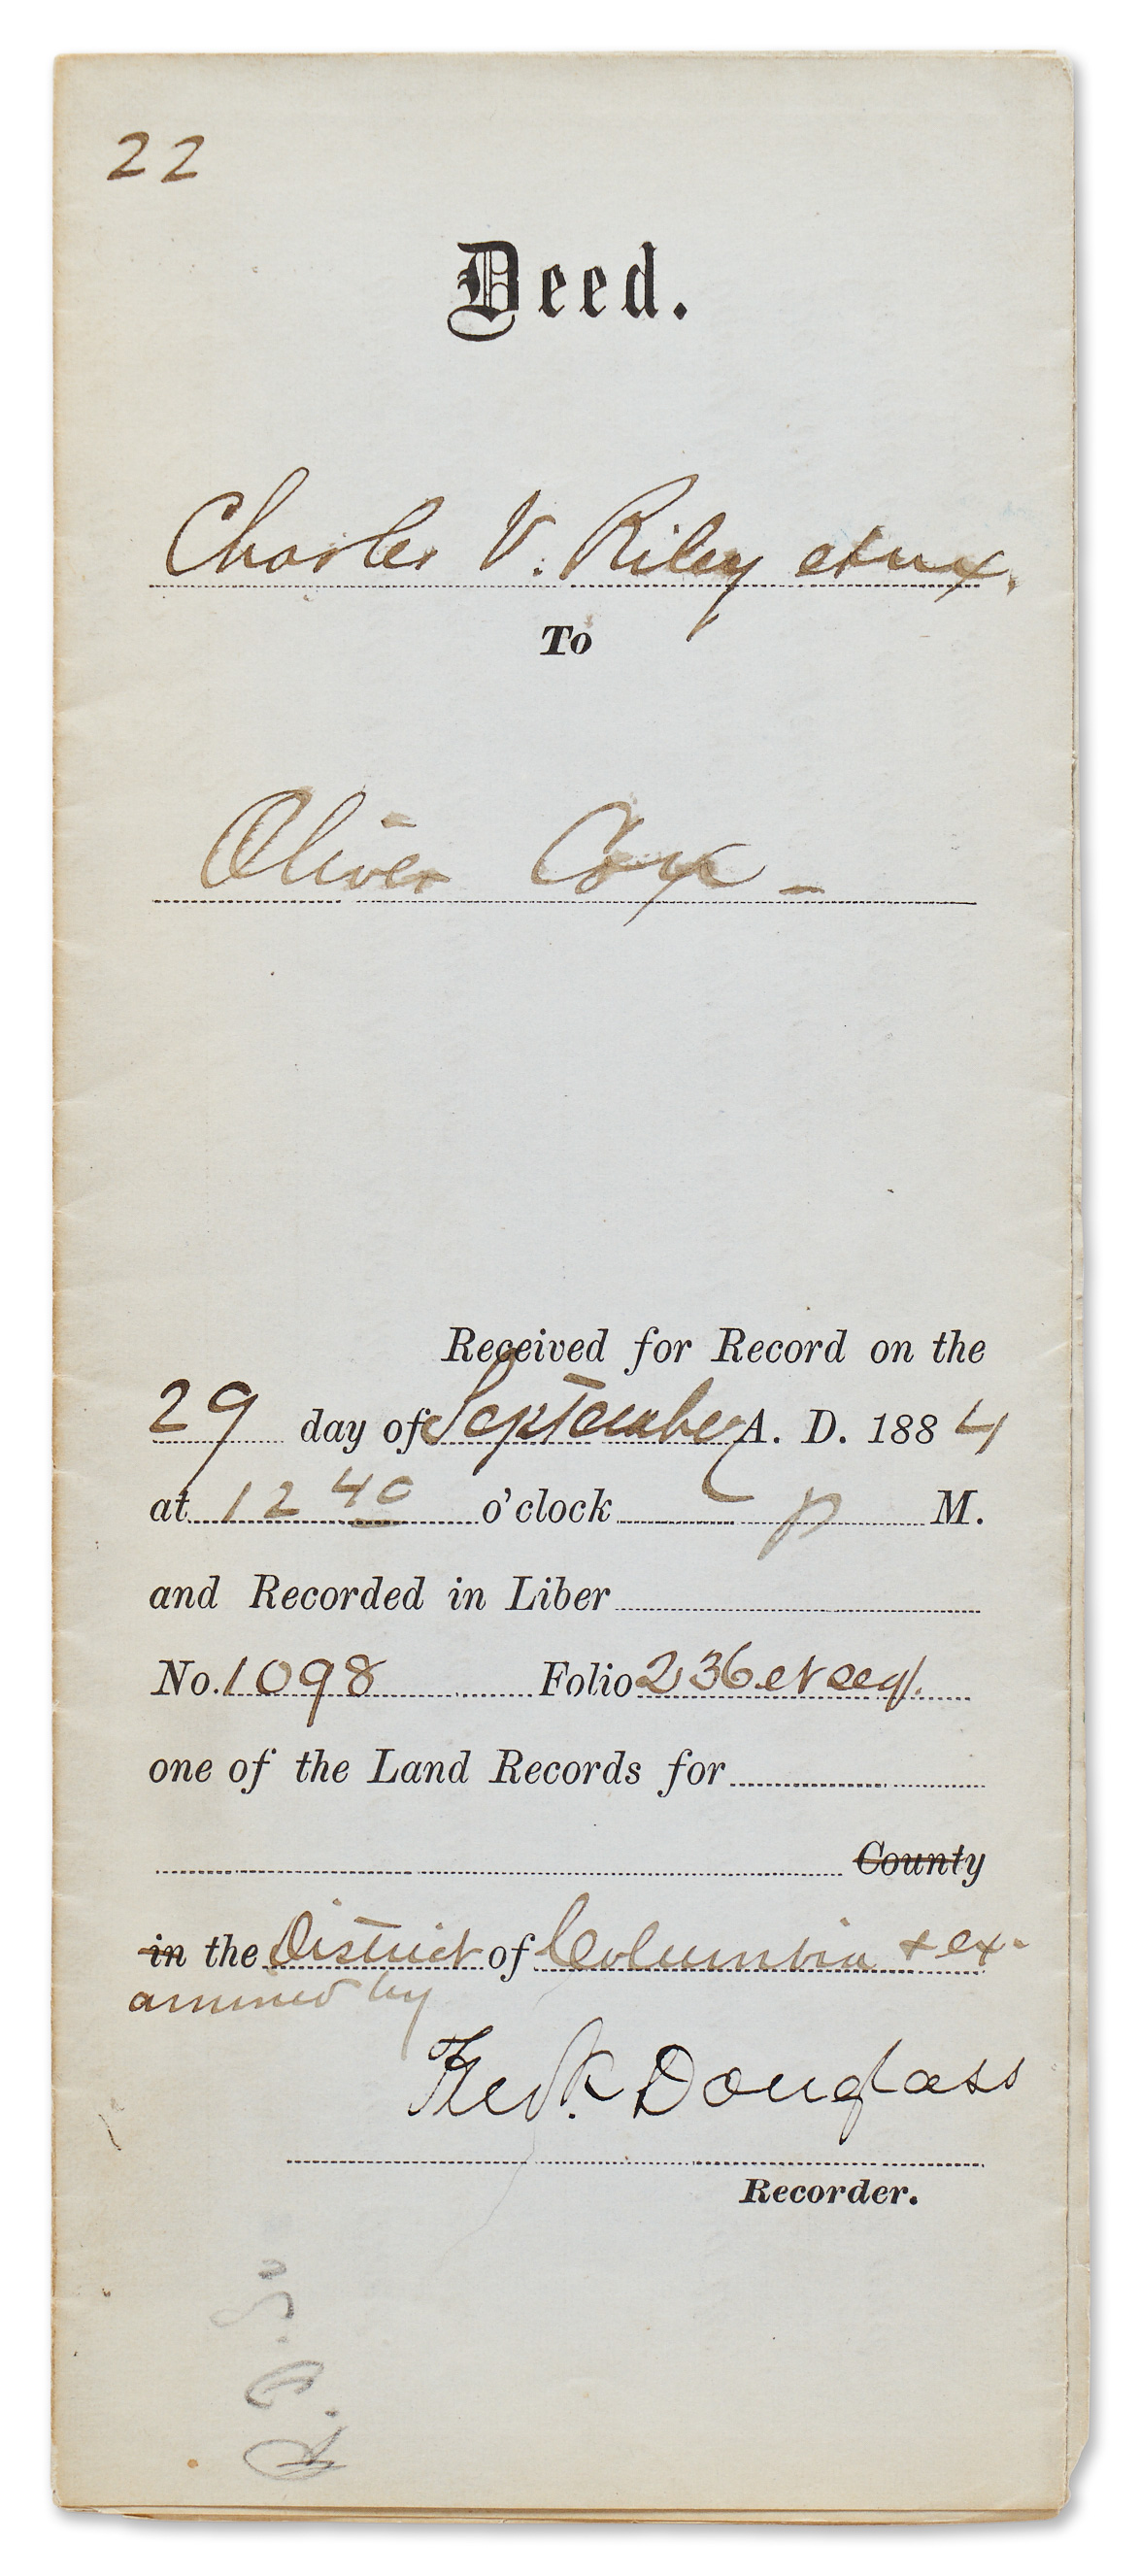 22
Deed.
Charles V. Riley et ux.
To
Oliver Cox –
Received for Record on the
29 day of September A. D. 1884
at 12 40 o'clock p M.
and Recorded in Liber
No. 1098 Folio 236 et seq.
one of the Land Records for
County
in the District of Columbia + ex-
amined by
Fredk. Douglass
Recorder.